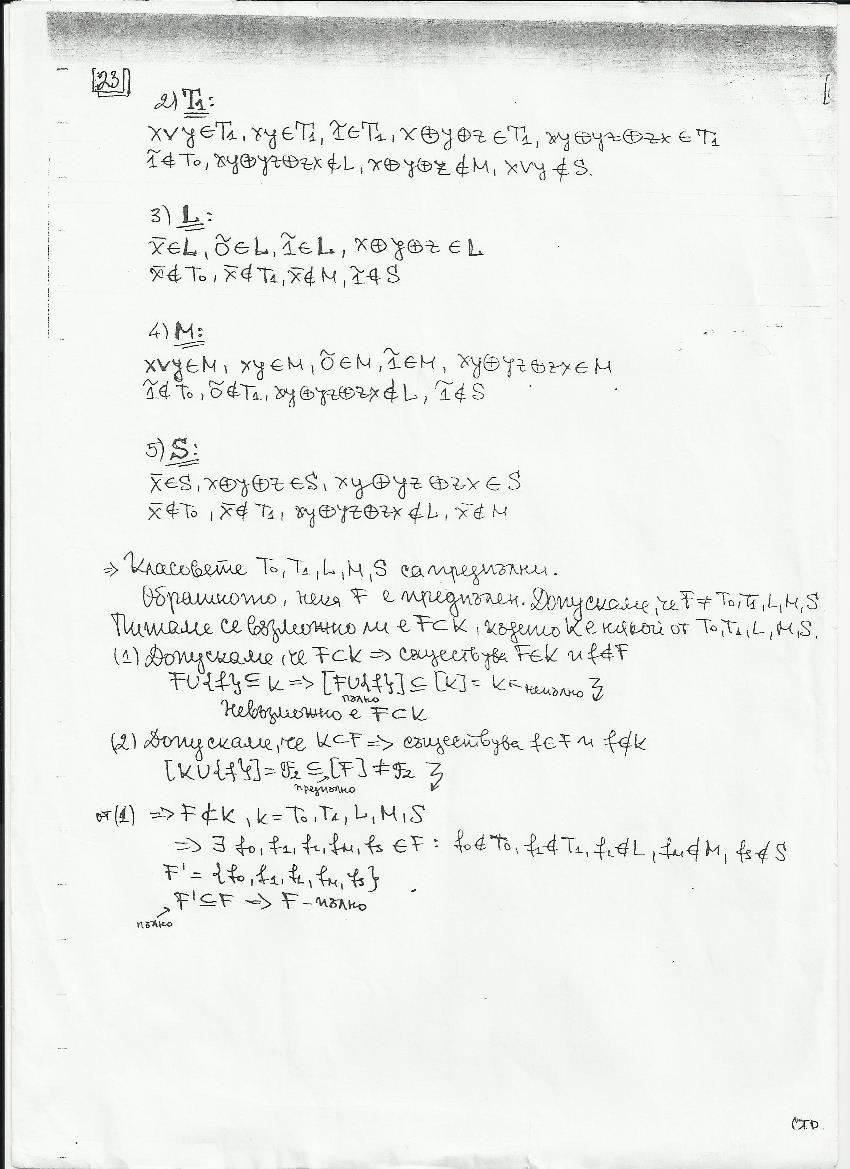 [23]
2) T₁:
x∨y∈T₁, xy∈T₁, 1̃∈T₁, x⊕y⊕z∈T₁, xy⊕yz⊕zx∈T₁
1̃∉T₀, xy⊕yz⊕zx∉L, x⊕y⊕z∉M, x∨y∉S.
3) L:
x̄∈L, 0̃∈L, 1̃∈L, x⊕y⊕z∈L
x̄∉T₀, x̄∉T₁, x̄∉M, 1̃∉S
4) M:
x∨y∈M, xy∈M, 0̃∈M, 1̃∈M, xy⊕yz⊕zx∈M
1̃∉T₀, 0̃∉T₁, xy⊕yz⊕zx∉L, 1̃∉S
5) S:
x̄∈S, x⊕y⊕z∈S, xy⊕yz⊕zx∈S
x̄∉T₀, x̄∉T₁, xy⊕yz⊕zx∉L, x̄∉M
⇒ Класовете T₀, T₁, L, M, S са предпълни.
Обратното, нека F е предпълен. Допускаме, че F≠T₀,T₁,L,M,S
Питаме се възможно ли е F⊂K, където K е някой от T₀,T₁,L,M,S.
(1) Допускаме, че F⊂K ⇒ съществува f∈K и f∉F
F∪{f}⊆K ⇒ [F∪{f}]⊆[K]=K ← непълно ↯
пълно
Невъзможно е F⊂K
(2) Допускаме, че K⊂F ⇒ съществува f∈F и f∉K
[K∪{f}]=F₂⊆[F]≠F₂ ↯
предпълно
от (1) ⇒ F⊄K, K=T₀,T₁,L,M,S
⇒ ∃ f₀, f₁, f_L, f_M, f_S ∈F: f₀∉T₀, f₁∉T₁, f_L∉L, f_M∉M, f_S∉S
F'={f₀, f₁, f_L, f_M, f_S}
F'⊆F ⇒ F - пълно
пълно